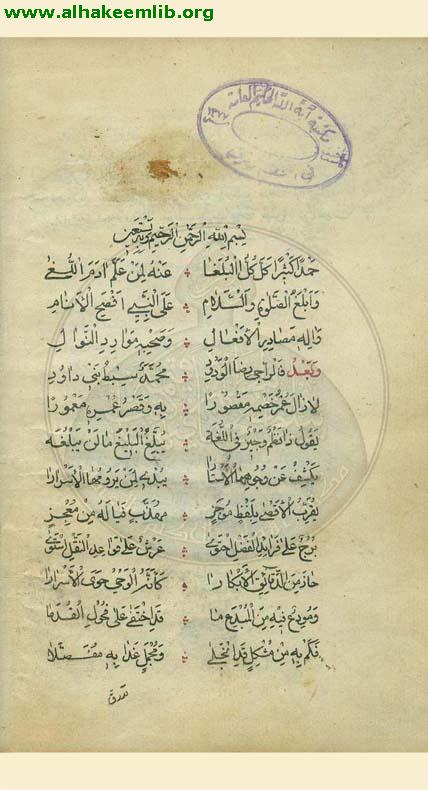 www.alhakeemlib.org
مكتبة آية الله الحكيم العامة
بسم الله الرحمن الرحيم وبه نستعين
حمدا كثيرا كل كل البلغا عنه لمن علم ادم اللغى
وابلغ الصلوة والسلام على النبي افصح الانام
واله مصادر الافعال وصحبه موارد النوال
وبعد فالراجي رضا الودود محمد سبط بني داود
لا زال عمر خصمه مقصورا به وقصر عمره معمورا
يقول ذا نظم وجيز في اللغة يبلغ البليغ ما لن يبلغه
يكشف عن وجوهها الاستارا يبدي لمن يرومها الاسرارا
يقرب الاقصى بلفظ موجز مهذب فيا له من معجز
على فرايد الفضل احتوى على قواعد النقل استوى
حاز من الدقائق الابكارا كانه الوحي حوى الاسرارا
ومودع فيه من المبدع ما قد اختفى على فحول القدما
فكم به من مشكل قد انجلى ومجمل غدا به مفصلا